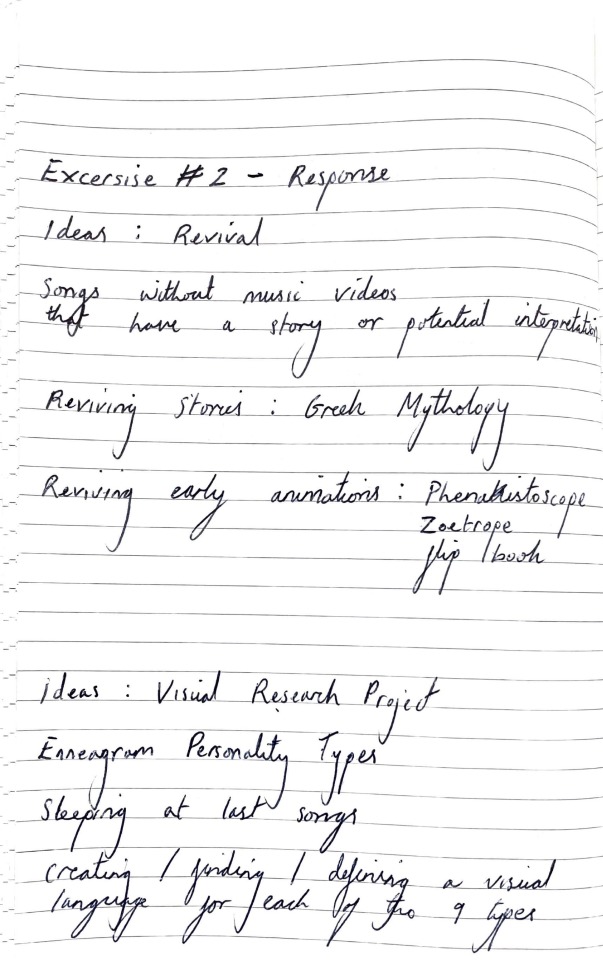 Excersise #2 - Response
Ideas : Revival
Songs without music videos
that have a story or potential interpretation
Reviving stories : Greek Mythology
Reviving early animations : Phenakistoscope
Zoetrope
flip / book
ideas : Visual Research Project
Enneagram Personality Types
Sleeping at last songs
creating / finding / defining a visual
language for each of the 9 types